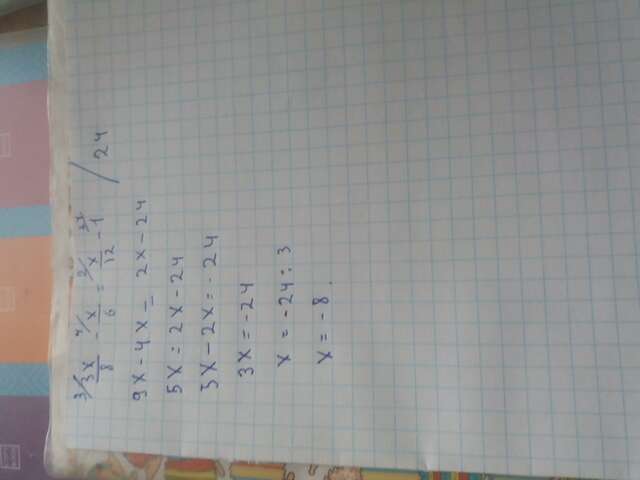 3/ 3x/8 - 4/ x/6 = 2/ x/12 - 1 / 24
9x - 4x = 2x - 24
5x = 2x - 24
5x - 2x = - 24
3x = - 24
x = - 24 : 3
x = - 8.